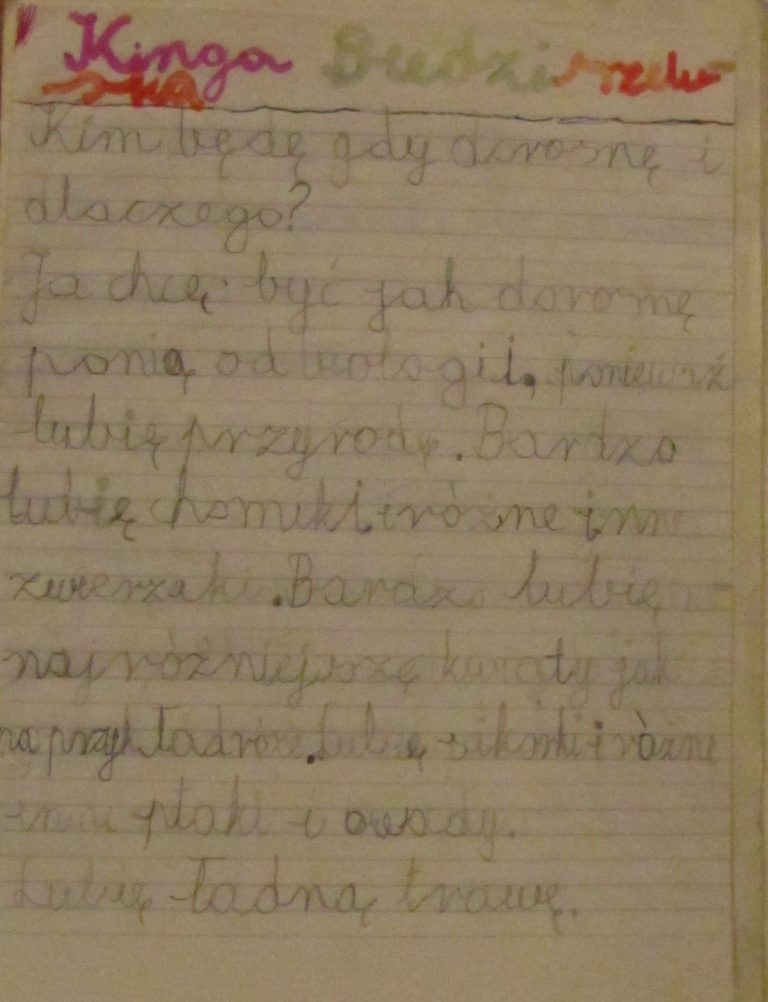 Kinga Budzi szew
ska
Kim będę gdy dorosnę i
dlaczego?
Ja chcę być jak dorosnę
panią od biologii, ponieważ
lubię przyrodę. Bardzo
lubię chomiki i różne inne
zwierzaki. Bardzo lubię
najróżniejszę kwiaty jak
na przykład róże. Lubię sikorki i różne
inne ptaki i owady.
Lubię ładną trawę.